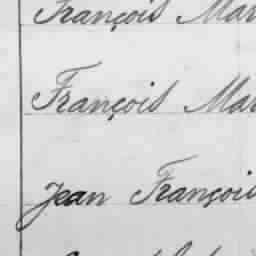 François Mar
François Mar
Jean François